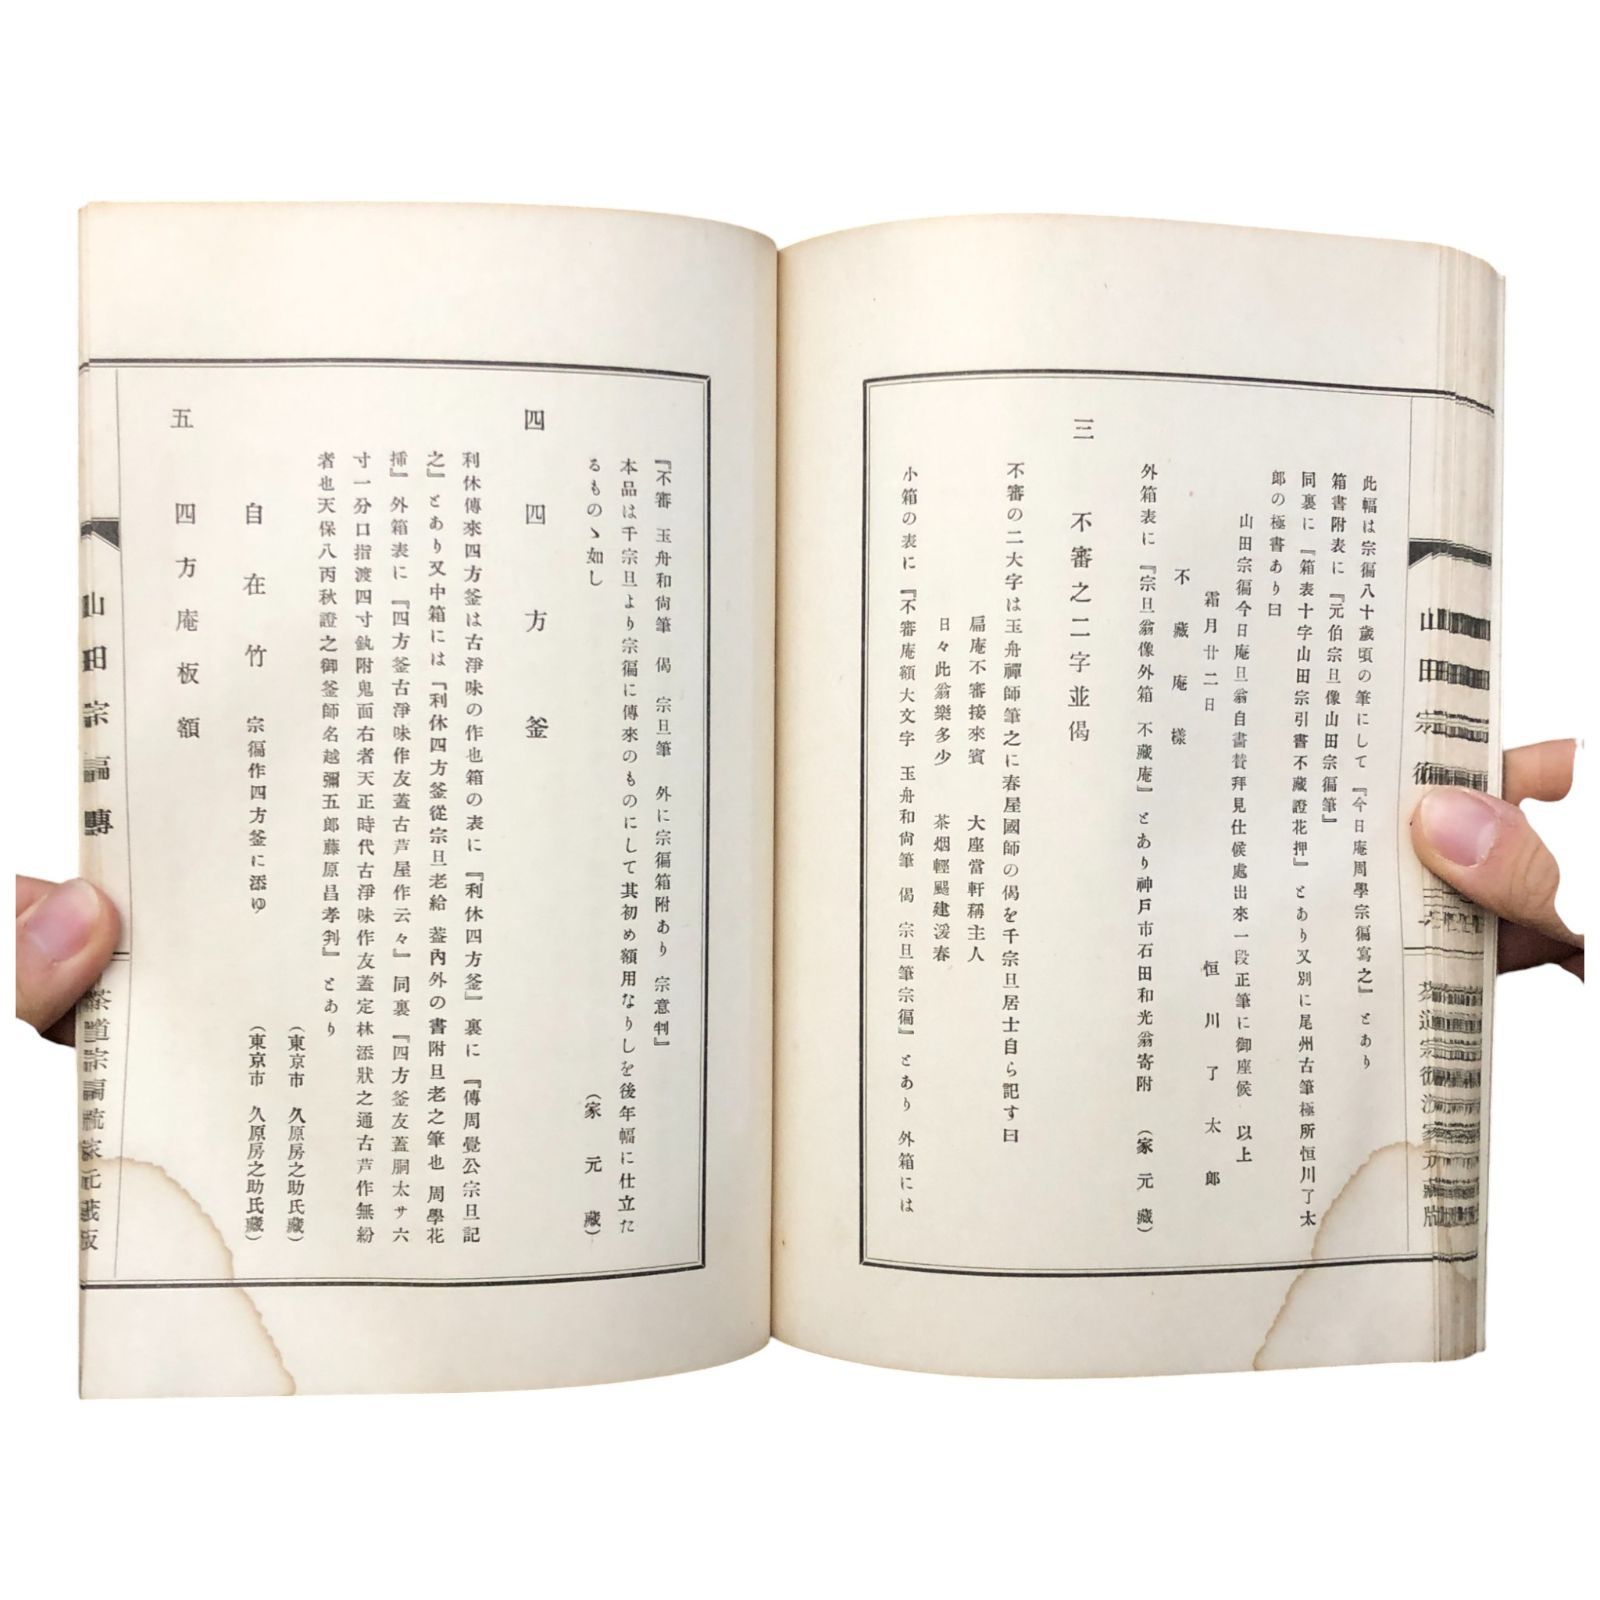 此幅は宗徧八十歳頃の筆にして『今日庵周學宗徧寫之』とあり
箱書附表に『元伯宗旦像山田宗徧筆』
同裏に『箱表十字山田宗引書不藏證花押』とあり又別に尾州古筆極所恒川了太
郎の極書あり曰
山田宗徧今日庵旦翁自畵賛拜見仕候處出來一段正筆に御座候 以上
霜月廿二日 恒川了太郎
不藏庵樣
外箱表に『宗旦翁像外箱 不藏庵』とあり神戸市石田和光翁寄附 (家元藏)
三 不審之二字並偈
不審の二大字は玉舟禪師筆之に春屋國師の偈を千宗旦居士自ら記す曰
扁庵不審接來賓 大座當軒稱主人
日々此翁樂多少 茶烟輕颺建溪春
小箱の表に『不審庵額大文字 玉舟和尙筆 偈 宗旦筆宗徧』とあり 外箱には
『不審 玉舟和尙筆 偈 宗旦筆 外に宗徧箱附あり 宗意判』
本品は千宗旦より宗徧に傳來のものにして其初め額用なりしを後年幅に仕立た
るものゝ如し (家元藏)
四 四方釜
利休傳來四方釜は古淨味の作也箱の表に『利休四方釜』裏に『傳周覺公宗旦記
之』とあり又中箱には『利休四方釜從宗旦老給 蓋內外の書附旦老之筆也 周學花
揷』外箱表に『四方釜古淨味作友蓋古芦屋作云々』同裏『四方釜友蓋胴太サ六
寸一分口指渡四寸釻附鬼面右者天正時代古淨味作友蓋定林添狀之通古芦作無紛
者也天保八丙秋證之御釜師名越彌五郎藤原昌孝判』とあり
(東京市 久原房之助氏藏)
自在竹 宗徧作四方釜に添ゆ (東京市 久原房之助氏藏)
五 四方庵板額
山田宗徧傳
茶道宗徧流家元藏版